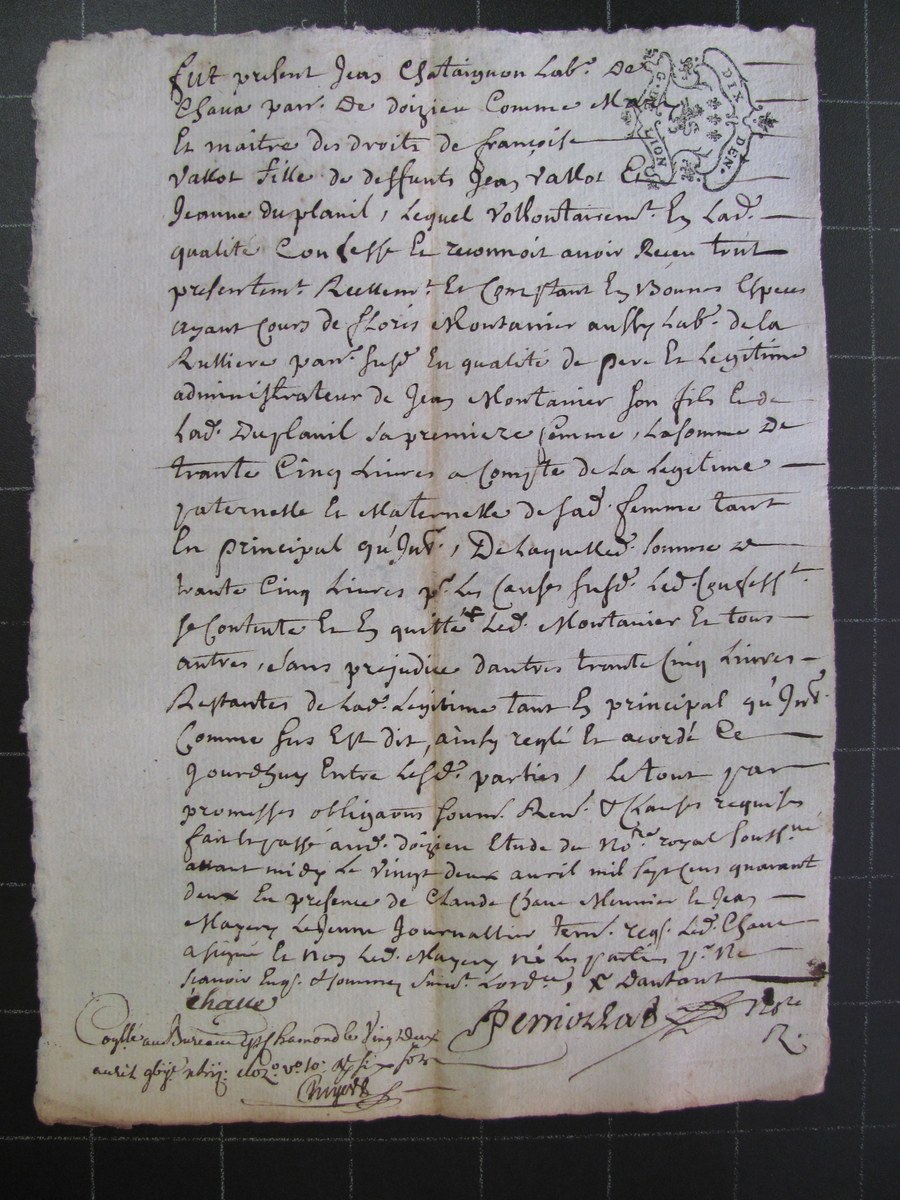 fut present Jean Chataignon Lab.r De
Chava parr.e De doizieu Comme Mary
Et maitre des droits de francoise
vallot fille de deffunts Jean vallot Et
Jeanne duplanil, Lequel vollontairem.t En lad.
qualité Confesse Et reconnoit avoir Receu tout
presentem.t Reellem.t Et Comptant En Bonnes Especes
ayant Cours de floris Montanier aussy Lab.r de la
Rulliere parr.e susd. En qualité de pere Et Legitime
administrateur de Jean Montanier son fils Et de
Lad. Duplanil sa premiere femme, La somme De
trante Cinq Livres a Compte de La Legitime
paternelle Et Maternelle de sad. femme tant
En principal qu'Int.t, De Laquelled. somme de
trante Cinq Livres p.r Les Causes susd. Led. Confess.t
se Contente Et En quitte Led. Montanier Et tous
autres, sans prejudice d'autres trante Cinq Livres
Restantes de Lad. Legitime tant En principal qu'Int.t
Comme sus Est dit, ainsy reglé Et acordé Ce
jourdhuy Entre Lesd. parties, Le tout par
promesses obligaons soum. Ren. & Clauses requises
fait Et passé aud. doizieu Etude du No.re royal souss.né
avant midy Le vingt deux avril mil sept cens quarant
deux En presence de Claude Chave Meunier Et Jean
Mayery Le Jeune Journallier tem. req. Led. Chave
a signé Et non Led. Mayery Ne Les parties p.r Ne
scavoir Enq. & sommés suiv.t Lord.ce, D'autant
chave
Perriozhad No.re
R.
au Bureau de S.t Chamond le Vingt Deux
avril